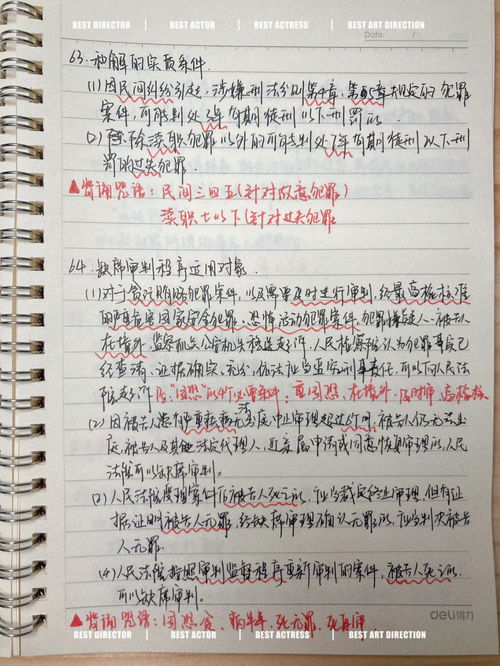 BEST DIRECTOR BEST ACTOR BEST ACTRESS BEST ART DIRECTION
Date. /
63. 和解的实质条件.
(1)因民间纠纷引起,涉嫌刑法分则第4章、第5章规定的犯罪
案件,可能判处3年有期徒刑以下刑罚的.
(2)除渎职犯罪以外的可能判处7年有期徒刑以下刑
罚的过失犯罪.
▲背诵咒语:民间三四五(针对故意犯罪)
渎职七以下(针对过失犯罪
64.缺席审判程序适用对象.
(1)对于贪污贿赂犯罪案件,以及需要及时进行审判,经最高检核准
的严重危害国家安全犯罪、恐怖活动犯罪案件,犯罪嫌疑人、被告人
在境外,监察机关、公安机关移送起诉,人民检察院认为犯罪事实已
经查清,证据确实、充分,依法应当追究刑事责任,可以向人民法
院起诉 "国恐"的4个必要条件:重国恐、在境外、及时审、高检核
(2)因被告人患有严重疾病无法出庭,中止审理超过6个月,被告人仍无法出
庭,被告人及其法定代理人、近亲属申请或同意恢复审理的,人民
法院可以缺席审判.
(3)人民法院受理案件后被告人死亡的,应当裁定终止审理,但有证
据证明被告人无罪,经缺席审理确认无罪的,应当判决被告
人无罪.
(4)人民法院按照审判监督程序重新审判的案件,被告人死亡的,
可以缺席审判。
deli得力
▲背诵咒语:国恐贪、病半年、死无罪、死再审
BEST DIRECTOR BEST ACTOR BEST ACTRESS BEST ART DIRECTION